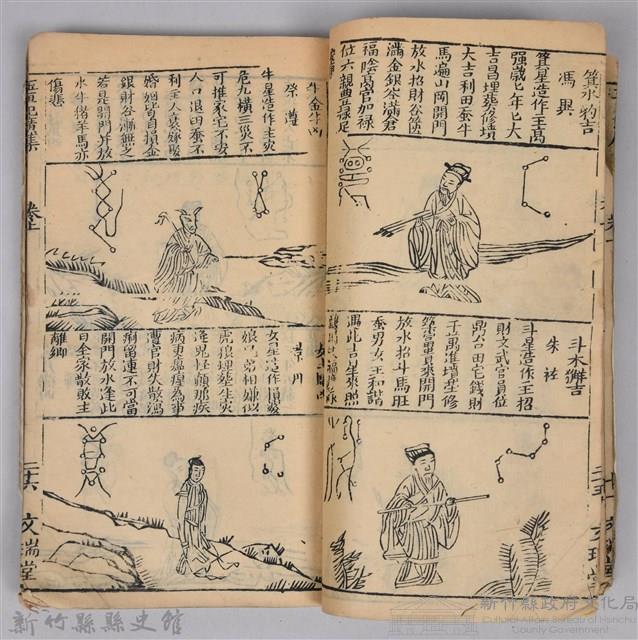 箕水豹吉
馮異
箕星造作主萬
強歲々年々大
吉昌埋葬修墳
大吉利田蚕牛
馬遍山岡開門
放水招財谷
滿金銀谷滿倉
福陰高官加禄
位六親豐禄足
斗木獬吉
朱祐
斗星造作主招
財文武官員位
鼎台田宅錢財
千萬進墳塋修
築富貴來開門
放水招斗馬旺
蚕男女主和諧
遇此吉星來照
牛金牛凶
祭遵
牛星造作主灾
危九橫三災不
可推家宅不安
人口退田蚕不
利主人衰嫁娶
婚姻皆自損金
銀財谷漸無之
若是開門并放
水牛猪羊馬亦
傷悲
景丹
女星造作損婆
娘兄弟相嫌似
虎狼埋塟生灾
逢鬼怪顛邪疾
病更瘟為事
遭官財失散瀉
痢留連不可當
開門放水逢此
日全家散敗主
離鄉
卷上
二十六
文瑞堂
新竹縣縣史館
新竹縣政府文化局
Cultural Affairs Bureau of Hsinchu
County Government